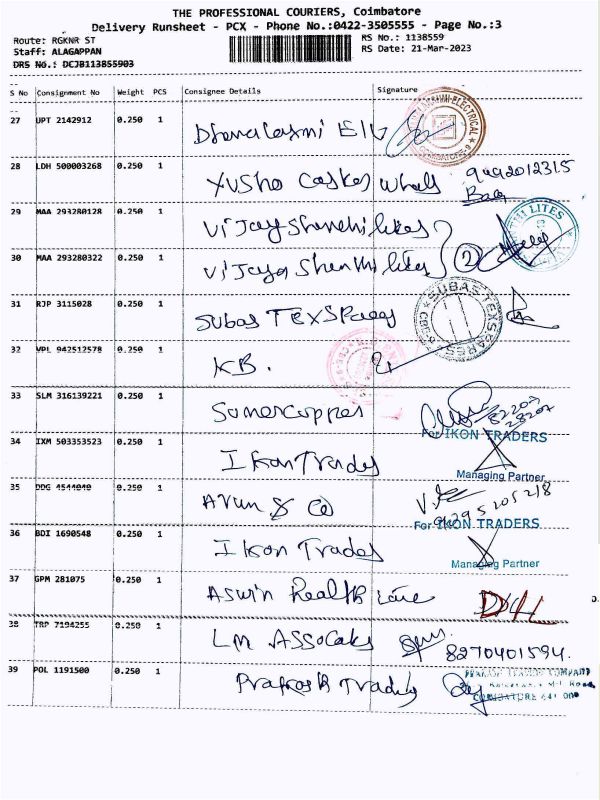 THE PROFESSIONAL COURIERS, Coimbatore
Delivery Runsheet - PCX - Phone No.:0422-3505555 - Page No.:3
Route: RGKNR ST RS No.: 1138559
Staff: ALAGAPPAN RS Date: 21-Mar-2023
DRS NO.: DCJB113855903
S No Consignment No Weight PCS Consignee Details Signature
27 UPT 2142912 0.250 1 Dhanalaxmi
28 LDH 500003268 0.250 1 9492012315
29 MAA 293280128 0.250 1 Vijay
30 MAA 293280322 0.250 1 Vijaya Shanthi lites 2
31 RJP 3115028 0.250 1 Subas TEXSPares
SUBAS TEXSPARES
32 VPL 942512578 0.250 1 KB.
33 SLM 316139221 0.250 1
For IKON TRADERS
34 IXM 503353523 0.250 1 Ikon Trades
Managing Partner
35 DDG 4544040 0.250 1 Arun & Co
For IKON TRADERS
36 BDI 1690548 0.250 1 Ikon Trades
Managing Partner
37 GPM 281075 0.250 1 Aswin Health Care
38 TRP 7194255 0.250 1 LM 8270401594.
39 POL 1191500 0.250 1 Prakash Trading
COIMBATORE 641 009